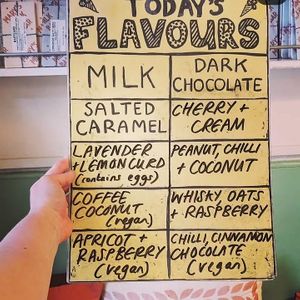 TODAY'S
FLAVOURS
MILK
DARK
CHOCOLATE
SALTED
CARAMEL
CHERRY +
CREAM
LAVENDER
+ LEMON CURD
(contains eggs)
PEANUT, CHILLI
+ COCONUT
COFFEE
COCONUT
(vegan)
WHISKY, OATS
+ RASPBERRY
APRICOT +
RASPBERRY
(vegan)
CHILLI, CINNAMON
CHOCOLATE
(vegan)